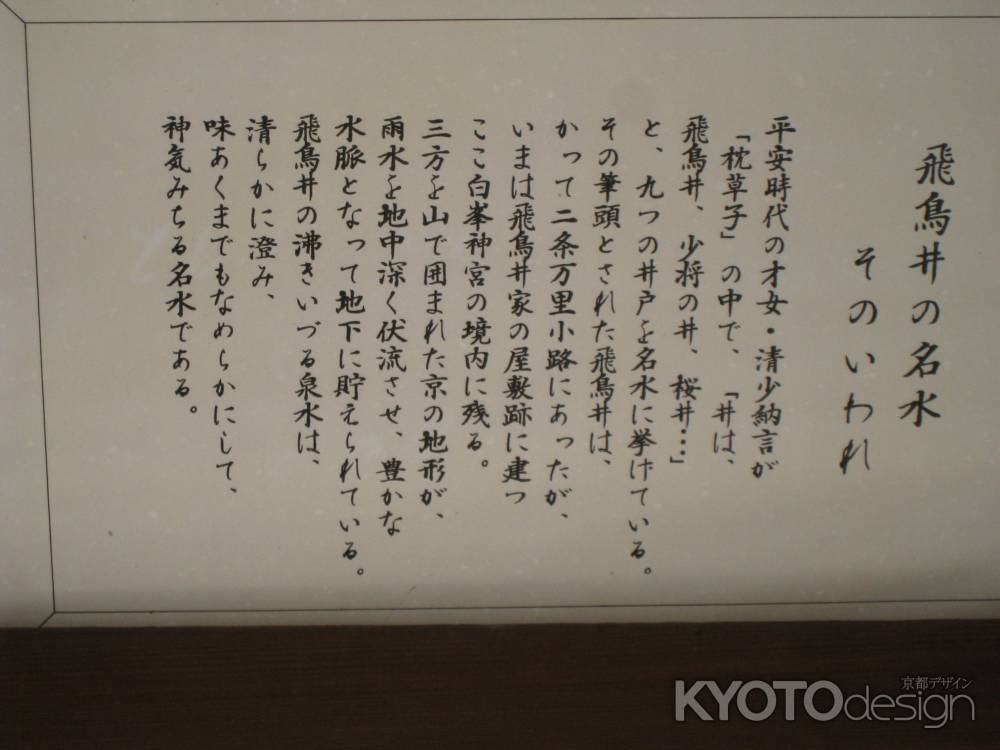 飛鳥井の名水
そのいわれ
平安時代の才女・清少納言が
「枕草子」の中で、「井は、
飛鳥井、少将の井、桜井…」
と、九つの井戸を名水に挙げている。
その筆頭とされた飛鳥井は、
かって二条万里小路にあったが、
いまは飛鳥井家の屋敷跡に建つ
ここ白峯神宮の境内に残る。
三方を山で囲まれた京の地形が、
雨水を地中深く伏流させ、豊かな
水脈となって地下に貯えられている。
飛鳥井の沸きいづる泉水は、
清らかに澄み、
味あくまでもなめらかにして、
神気みちる名水である。
京都デザイン
KYOTOdesign